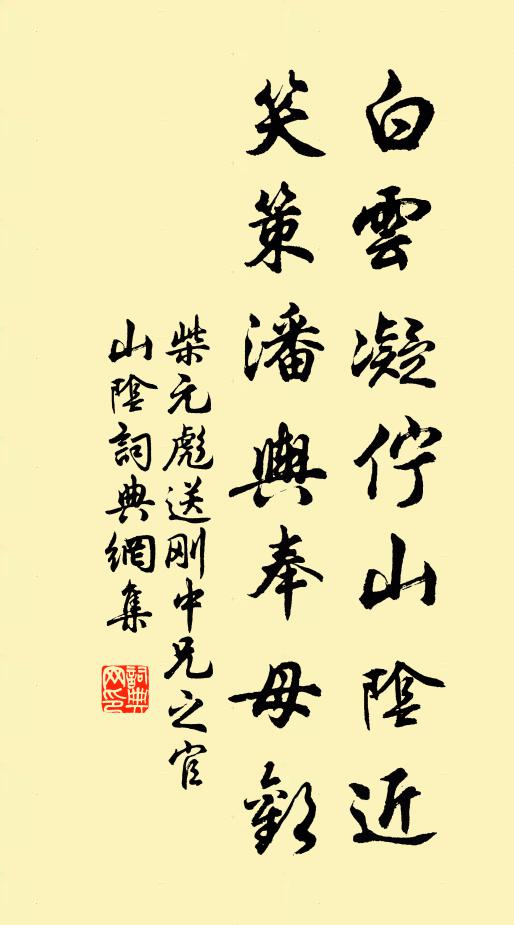 白雲凝佇山陰近
笑策潘輿奉母歡
柴元彪送剛中兄之官
山陰詞典網集
詞典
网印